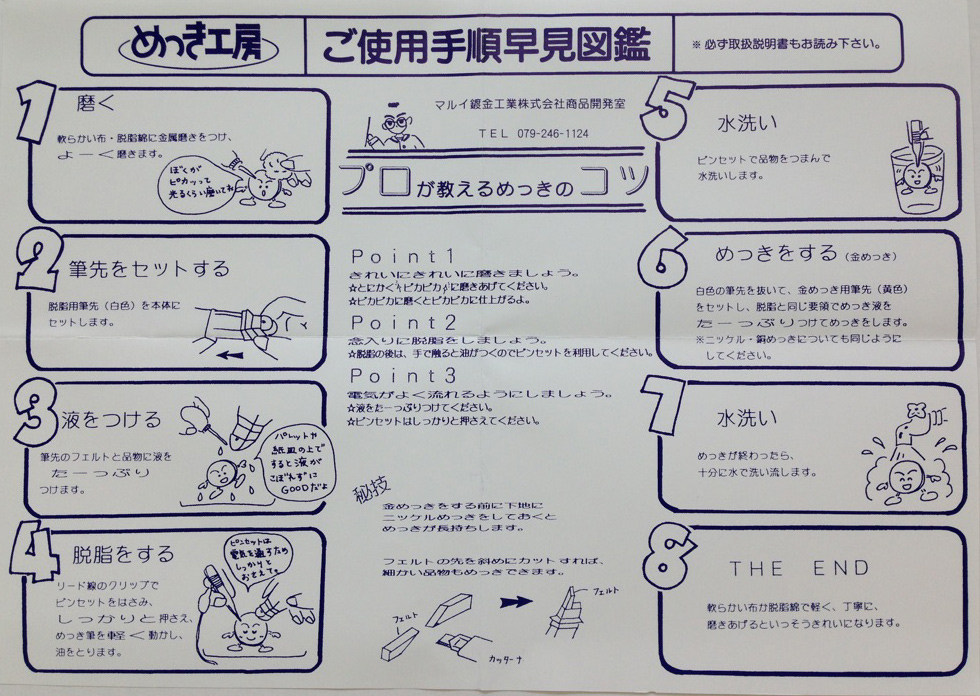 めっき工房
ご使用手順早見図鑑
※必ず取扱説明書もお読み下さい。
1 磨く
軟らかい布・脱脂綿に金属磨きをつけ、
よーく磨きます。
ぼくが
ピカッって
光るくらい磨いてネ
2 筆先をセットする
脱脂用筆先(白色)を本体に
セットします。
3 液をつける
筆先のフェルトと品物に液を
たーっぷり
つけます。
パレットや
紙皿の上で
すると液が
こぼれずに
GOODだよ
4 脱脂をする
リード線のクリップで
ピンセットをはさみ、
しっかりと押さえ、
めっき筆を軽く動かし、
油をとります。
ピンセットは
電気を通すため
しっかりと
おさえてネ
マルイ鍍金工業株式会社商品開発室
TEL 079-246-1124
プロが教えるめっきのコツ
Point1
きれいにきれいに磨きましょう。
☆とにかくピカピカに磨きあげてください。
☆ピカピカに磨くとピカピカに仕上がるよ。
Point2
念入りに脱脂をしましょう。
☆脱脂の後は、手で触ると油がつくのでピンセットを利用してください。
Point3
電気がよく流れるようにしましょう。
☆液をたーっぷりつけてください。
☆ピンセットはしっかりと押さえてください。
秘技
金めっきをする前に下地に
ニッケルめっきをしておくと
めっきが長持ちします。
フェルトの先を斜めにカットすれば、
細かい品物もめっきできます。
フェルト
フェルト
カッターナ
5 水洗い
ピンセットで品物をつまんで
水洗いします。
6 めっきをする(金めっき)
白色の筆先を抜いて、金めっき用筆先(黄色)
をセットし、脱脂と同じ要領でめっき液を
たーっぷりつけてめっきをします。
※ニッケル・銅めっきについても同じように
してください。
7 水洗い
めっきが終わったら、
十分に水で洗い流します。
8 THE END
軟らかい布か脱脂綿で軽く、丁寧に、
磨きあげるといっそうきれいになります。